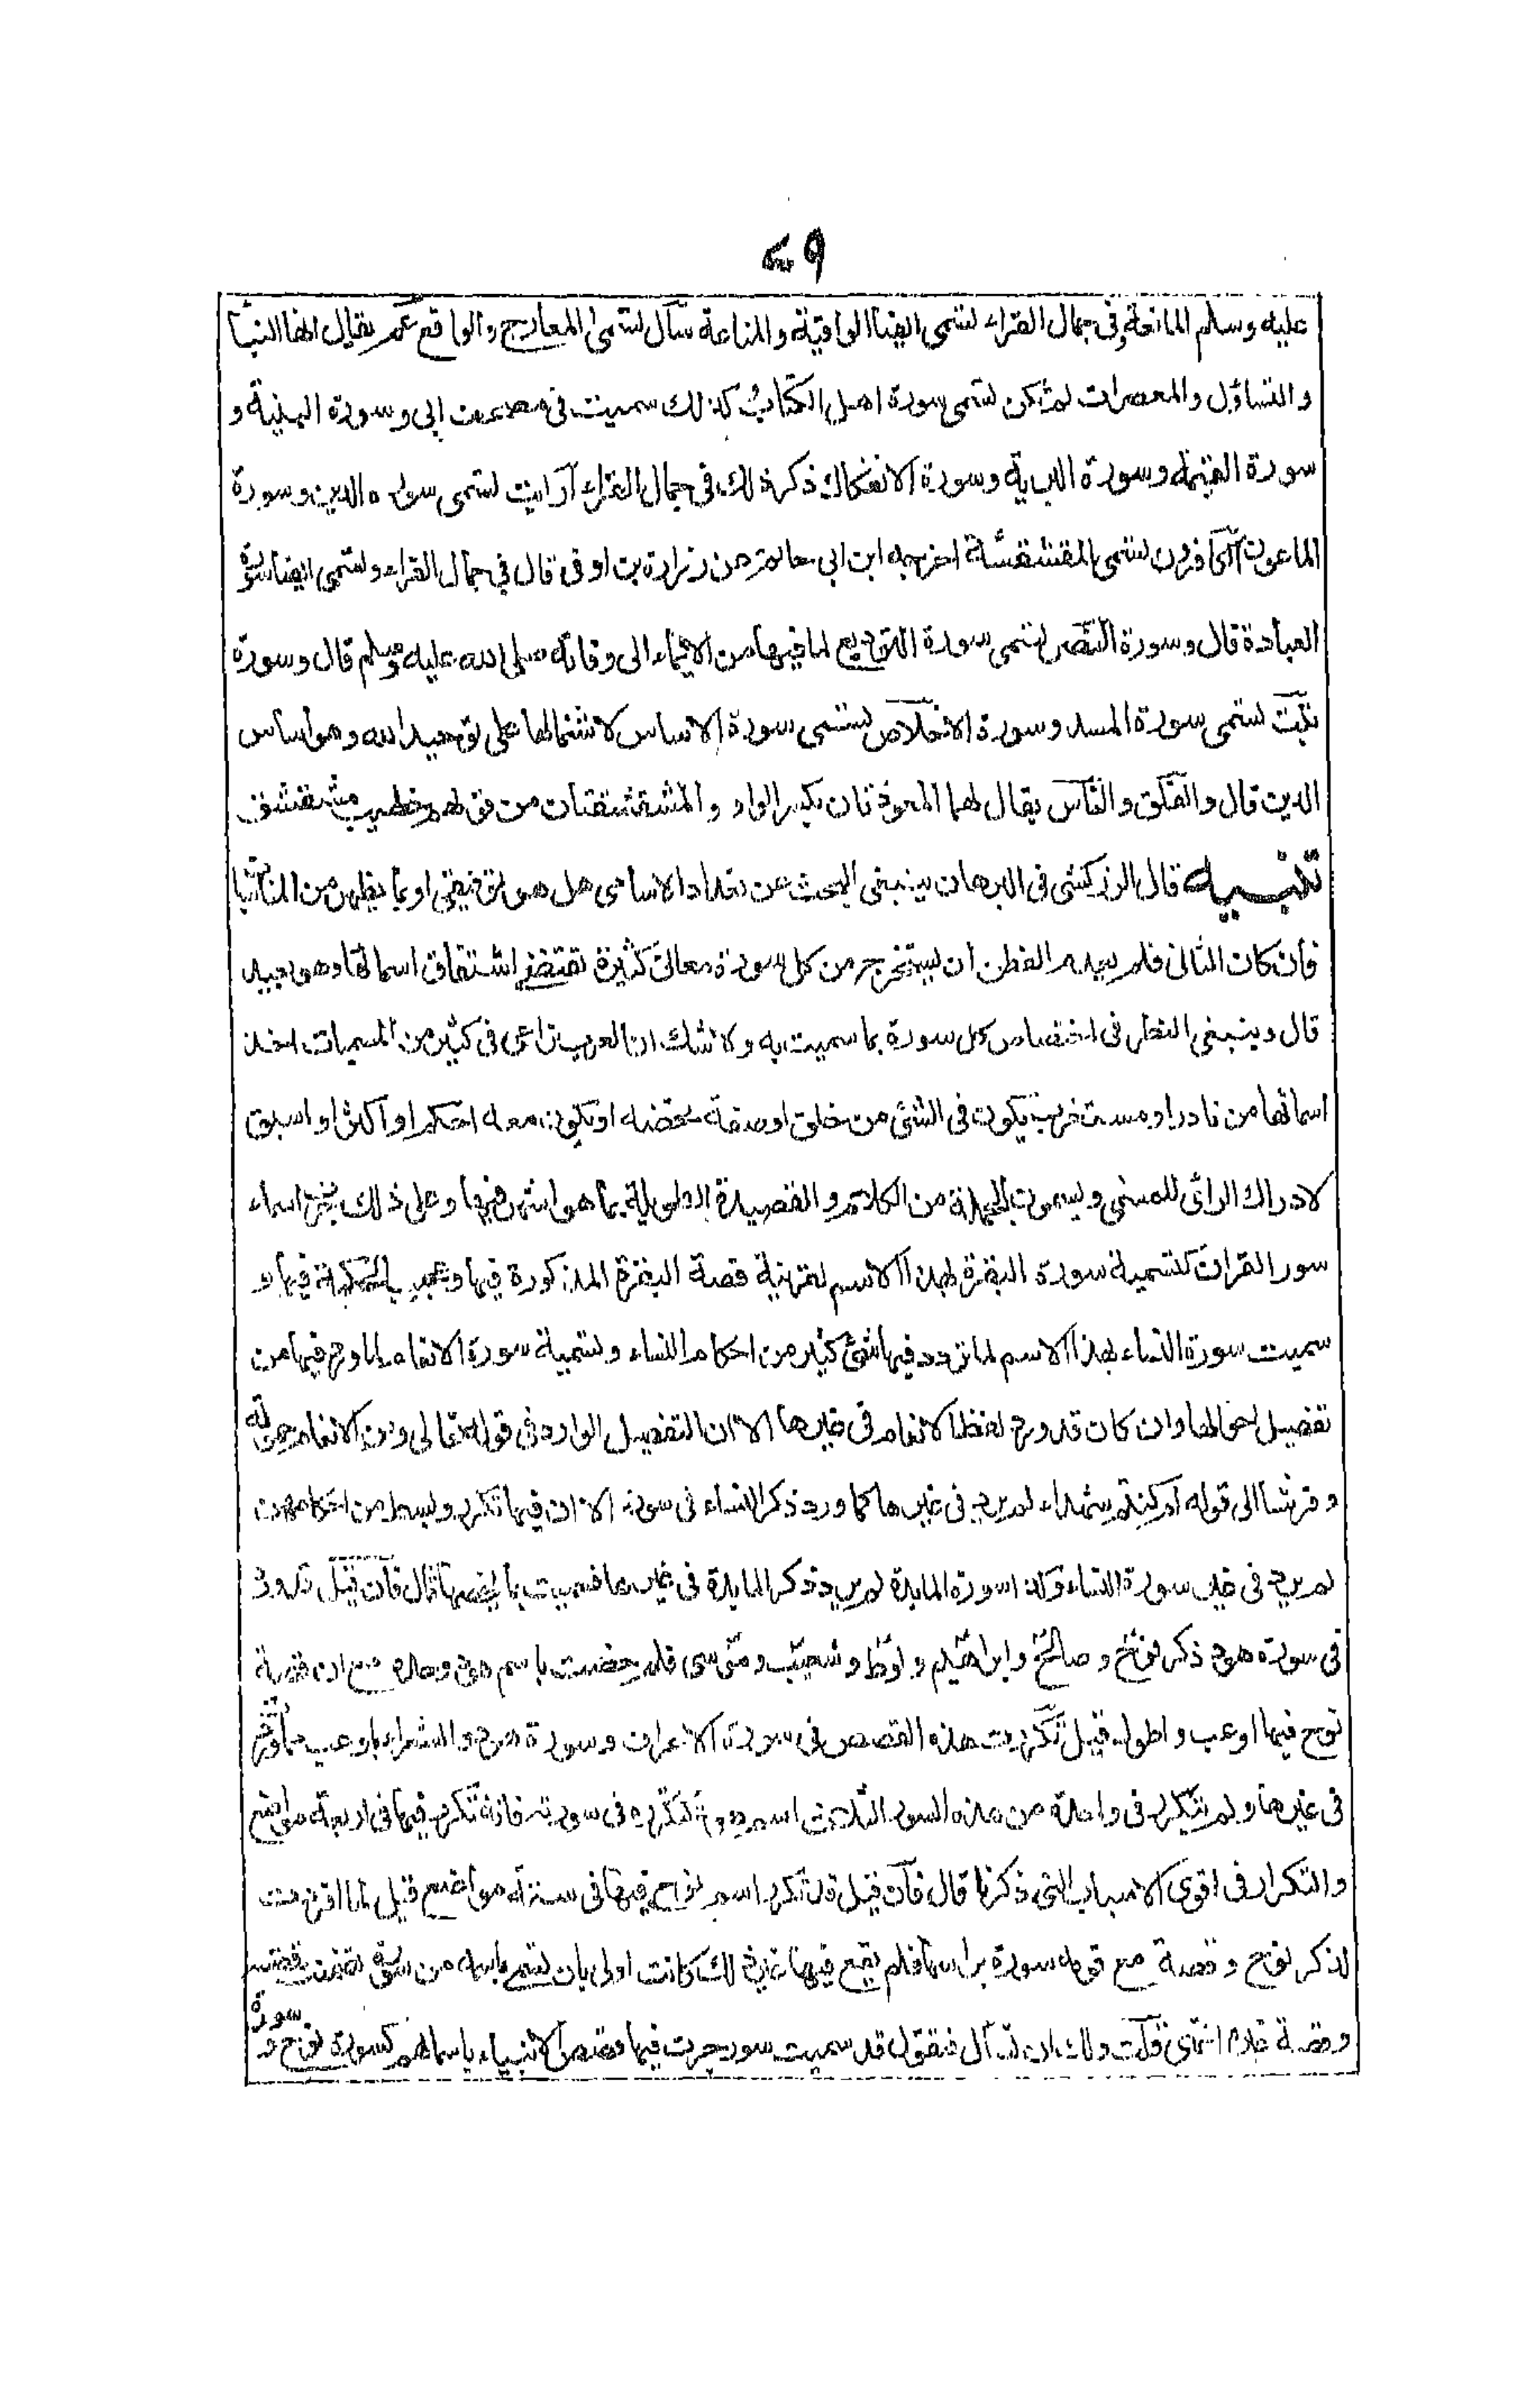 ٤٩
عليه وسلم المانعة وفى جمال القراء لتسمى ايضا الواقية والمناعة سأل تسمى المعارج والواقع عم يقال لها النبأ
والتساؤل والمعصرات لم يكن تسمى سورة اهل الكتاب كذلك سميت فى مصحف ابى وسورة البينة و
سورة القيمة وسورة البرية وسورة الانفكاك ذكر ذلك فى جمال القراء أرأيت تسمى سورة الدين وسورة
الماعون الكافرون تسمى المقشقشة اخرجه ابن ابى حاتم عن زرارة بن اوفى قال فى جمال القراء وتسمى ايضا سورة
العبادة قال وسورة النصر تسمى سورة التوديع لما فيها من الايماء الى وفاته صلى الله عليه وسلم قال وسورة
تبت تسمى سورة المسد وسورة الاخلاص تسمى سورة الاساس لاشتمالها على توحيد الله وهو اساس
الدين قال والفلق والناس يقال لهما المعوذتان بكسر الواو والمشقشقتان من قولهم خطيب مشقشق
تنبيه قال الزركشى فى البرهان ينبغى البحث عن تعداد الاسامى هل هو توقيفى او بما يظهر من المناسبات
فان كان الثانى فلم يعدم الفطن ان يستخرج من كل سورة معانى كثيرة تقتضى اشتقاق اسمائها وهو بعيد
قال وينبغى النظر فى اختصاص كل سورة بما سميت به ولا شك ان العرب تراعى فى كثير من المسميات اخذ
اسمائها من نادر او مستغرب يكون فى الشئ من خلق او صفة تخصه او تكون معه احكم او اكثر او اسبق
لادراك الرائى للمسمى ويسمون الجملة من الكلام والقصيدة الطويلة بما هو اشهر فيها وعلى ذلك جرت اسماء
سور القران كتسمية سورة البقرة بهذا الاسم لقرينة قصة البقرة المذكورة فيها وعجيب الحكمة فيها و
سميت سورة النساء بهذا الاسم لما تردد فيها شئ كثير من احكام النساء وتسمية سورة الانعام لما ورد فيها من
تفصيل احوالها وان كان قد ورد لفظ الانعام فى غيرها الا ان التفصيل الوارد فى قوله تعالى ومن الانعام حمولة
وفرشا الى قوله ام كنتم شهداء لم يرد فى غيرها كما ورد ذكر النساء فى سور الا ان فيها تكرر وبسط من احكامهن
لم يرد فى غير سورة النساء وكذا سورة المايدة لم يرد ذكر المايدة فى غيرها فسميت بما يخصها قال فان قيل قد ورد
فى سورة هود ذكر نوح وصالح وابراهيم ولوط وشعيب وموسى فلم خصت باسم هود وحده مع ان قصة
نوح فيها اوعب واطول قيل تكررت هذه القصص فى سورة الاعراف وسورة هود والشعراء باوعب مما وردت
فى غيرها ولم يتكرر فى واحدة من هذه السور الثلاث اسم هود كتكرره فى سورته فانه تكرر فيها فى اربعة مواضع
والتكرار فى اقوى الاسباب التى ذكرنا قال فان قيل قد تكرر اسم نوح فيها فى ستة مواضع قيل لما افردت
لذكر نوح وقصة مع قومه سورة براسها فلم يقع فيها غير ذلك كانت اولى بان تسمى باسمه من سورة تضمنت قصته
وقصة غيره انتهى قلت ولك ان تسأل فتقول قد سميت سور جرت فيها قصص الانبياء باسمائهم كسورة نوح و سورة